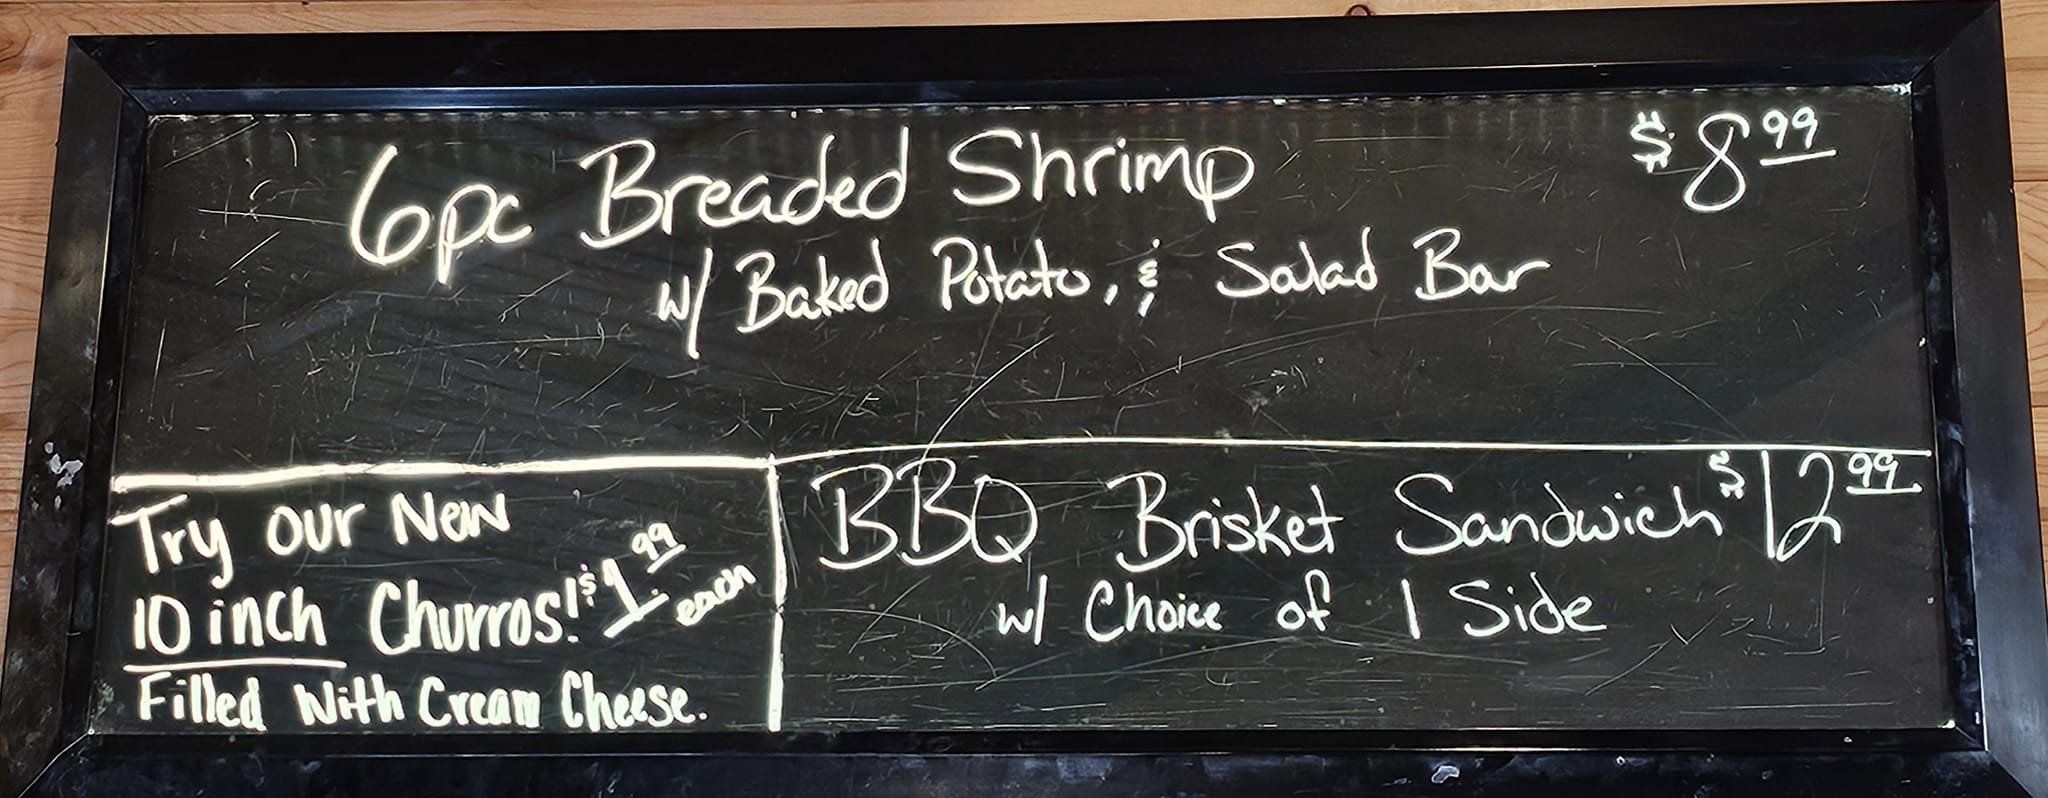 6pc Breaded Shrimp $8.99
w/ Baked Potato, & Salad Bar
Try our New
10 inch Churros! $1.99 each
Filled With Cream Cheese.
BBQ Brisket Sandwich $12.99
w/ Choice of 1 Side